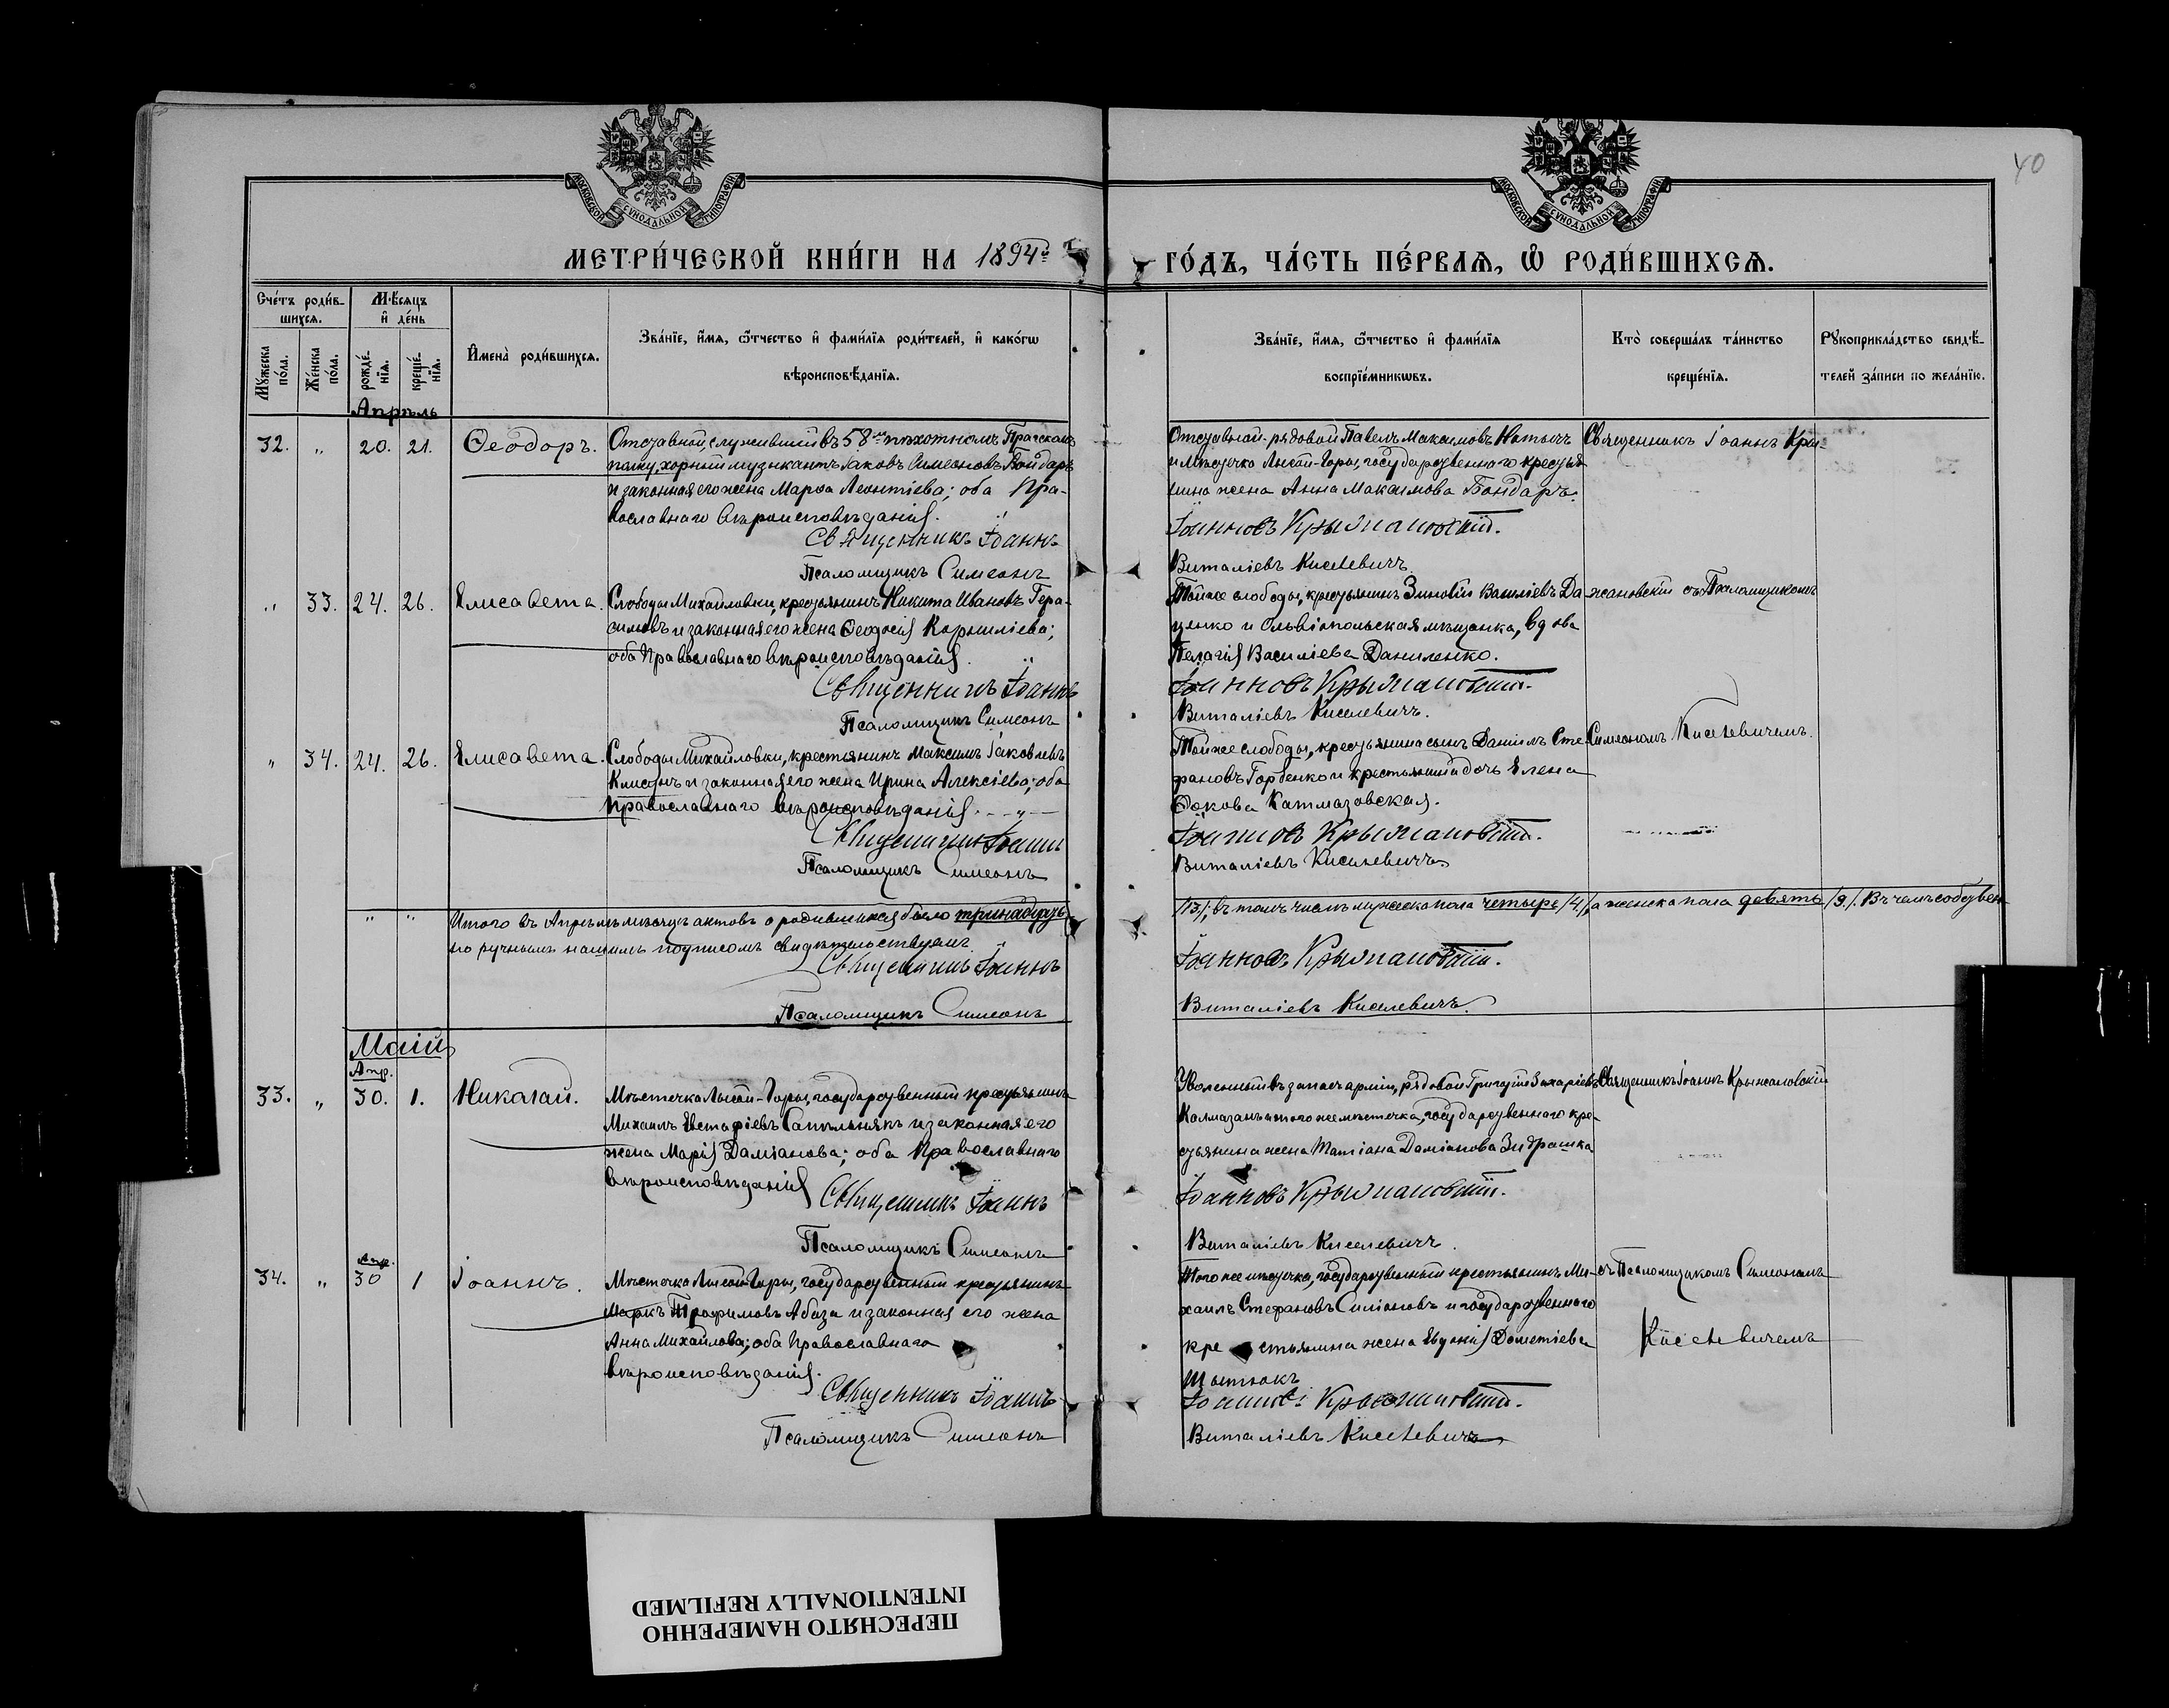 40
МОСКОВСКОЙ СѴНОДАЛЬНОЙ ТИПОГРАФІИ
МОСКОВСКОЙ СѴНОДАЛЬНОЙ ТИПОГРАФІИ
МЕТРИ́ЧЕСКОЙ КНИ́ГИ НА 1894й
ГО́ДЪ, ЧА́СТЬ ПЕ́РВАѦ, Ѡ РОДИ́ВШИХСѦ.
Сче́тъ роди́в-
шихсѧ.
Мѣ́сѧцъ
и҆ де́нь
Му́жеска по́ла.
Же́нска по́ла.
рожде́-
нїѧ.
креще́-
нїѧ.
И҆мена̀ роди́вшихсѧ.
Зва́нїе, и҆́мѧ, ѻ҆́тчество и҆ фами́лїѧ роди́телей, и҆ како́гѡ
вѣроисповѣ́данїѧ.
Зва́нїе, и҆́мѧ, ѻ҆́тчество и҆ фами́лїѧ
воспрїе́мникѡвъ.
Кто̀ соверша́лъ та́инство
креще́нїѧ.
Рꙋкоприкла́дство свидѣ́-
телей за́писи по жела́нїю.
Апрѣль
32. " 20. 21. Ѳеодоръ.
Отставной, служившій въ 58м пѣхотномъ Прагскомъ
полку, хорный музыкантъ Іаковъ Симеоновъ
и законная его жена Марѳа Леонтіева; оба Пра-
вославнаго вѣроисповѣданія.
Священникъ Іоаннъ
Псаломщикъ Симеонъ
Отставной рядовой Павелъ Максимовъ
и Мѣстечка Лысой-Горы, государственнаго крестья
нина жена Анна Максимова Бондарь.
Іоанновъ Крыжановскій.
Виталіевъ Киселевичъ.
Священникъ Іоаннъ Кры-
" 33. 24. 26. Елисавета.
Слободы Михайловки, крестьянинъ Никита Ивановъ Гера-
симовъ и законная его жена Ѳеодосія Корниліева;
оба Православнаго вѣроисповѣданія.
Священникъ Іоаннъ
Псаломщикъ Симеонъ
Той же слободы, крестьянинъ Зиновій Василіевъ Да-
ценко и Ольвіопольская мѣщанка, вдова
Пелагія Василіева Даниленко.
Іоанновъ Крыжановскій.
Виталіевъ Киселевичъ.
жановскій съ Псаломщикомъ
" 34. 24. 26. Елисавета.
Слободы Михайловки, крестьянинъ Максимъ Іаковлевъ
и законная его жена Ирина Алексіева; оба
Православнаго вѣроисповѣданія.
Священникъ Іоаннъ
Псаломщикъ Симеонъ
Той же слободы, крестьянина сынъ Даніилъ Сте-
фановъ Горбенко и крестьянина дочь Елена
Катмазовская.
Іоанновъ Крыжановскій.
Виталіевъ Киселевичъ
Симеономъ Киселевичемъ.
" " Итого въ Апрѣлѣ мѣсяцѣ актовъ о родившихся было тринадцать
/13/; въ томъ числѣ мужеска пола четыре /4/, а женска пола девять /9/. В чемъ собствен-
но ручнымъ нашимъ подписомъ свидѣтельствуемъ.
Священникъ Іоаннъ
Іоанновъ Крыжановскій.
Псаломщикъ Симеонъ
Виталіевъ Киселевичъ.
Маій
Апр.
33. " 30. 1. Николай.
Мѣстечка Лысой-Горы, государственный крестьянинъ
Михаилъ Евстафіевъ и законная его
жена Марія Даміанова; оба Православнаго
вѣроисповѣданія
Священникъ Іоаннъ
Псаломщикъ Симеонъ
Уволенный въ запасъ арміи, рядовой Григорій Захаріевъ
Калмазанъ и того же мѣстечка, государственнаго кре-
стьянина жена Татіана Даміанова
Іоанновъ Крыжановскій.
Виталіевъ Киселевичъ.
Священникъ Іоаннъ Крыжановскій
Апр.
34. " 30 1 Іоаннъ.
Мѣстечка Лысой-Горы, государственный крестьянинъ
Маркъ Трофимовъ Абаза и законная его жена
Анна Михайлова; оба Православнаго
вѣроисповѣданія.
Священникъ Іоаннъ
Псаломщикъ Симеонъ
Того же мѣстечка, государственный крестьянинъ Ми-
хаилъ Стефановъ Симіоновъ и государственнаго
крестьянина жена Евдокія Дометіева
Іоанновъ Крыжановскій.
Виталіевъ Киселевичъ
съ Псаломщикомъ Симеономъ
Киселевичемъ
ПЕРЕСНЯТО НАМЕРЕННО
INTENTIONALLY REFILMED